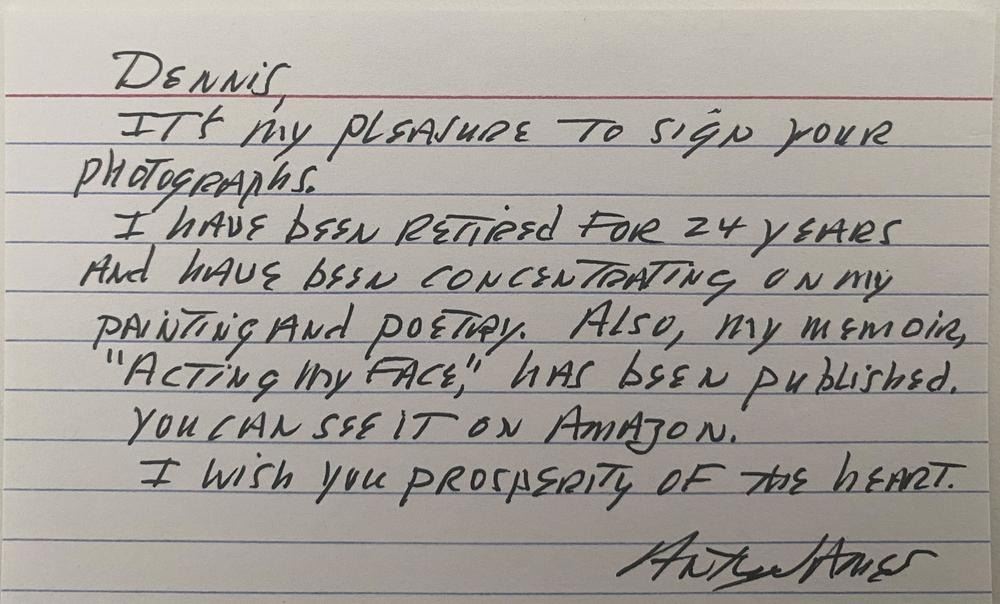 Dennis,
It's my pleasure to sign your
photographs.
I have been retired for 24 years
and have been concentrating on my
painting and poetry. Also, my memoir,
"Acting My Face," has been published.
You can see it on Amazon.
I wish you prosperity of the heart.
Anthony James